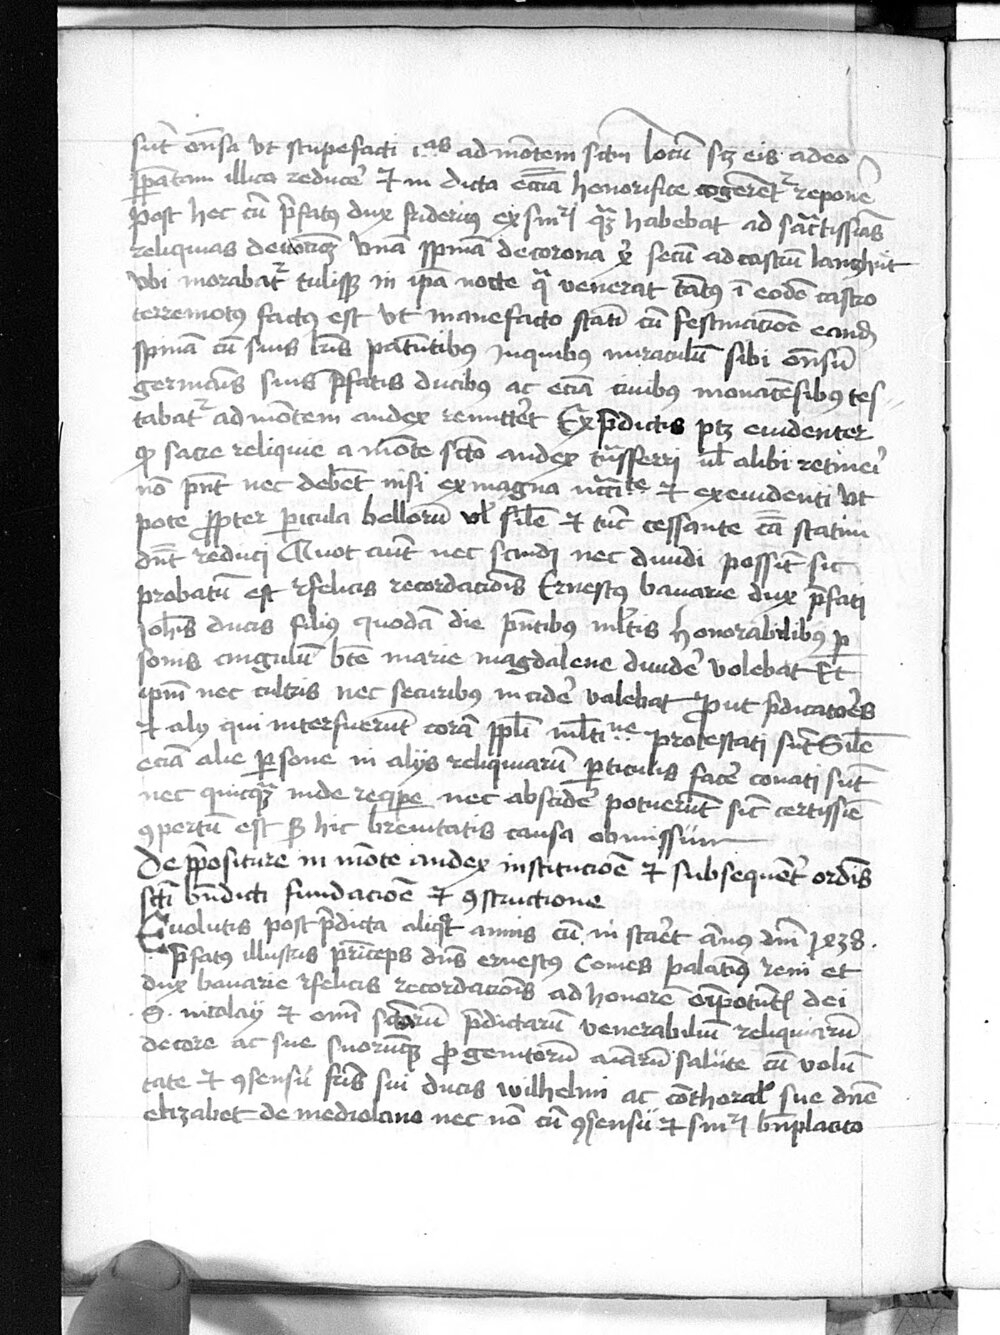 sūt oñsa vt stupefacti i.as ad mōtem sctm locū sz eis adeo
sp̄atam illico reducer̄ et in dicta ecc̄ia honorifice cogerent᷑ repone᷑
Post hec cū p̄fatus dux fridericus ex sing᷑l qz habebat ad sāctissīas
reliquias deuocōz vnā spinā de corona xp̄i secū ad castrū lanczhůt
vbi morabat᷑ tulisz in ip̄a nocte q̄ venerat tātus ī eodē castro
terremotus factus est vt mane facto statī cū festinacōe eand̄
spinā cū suis lr̄is patentibus in quibus miraculū sibi oñsū
germanis suis p̄fatis ducibus ac eciā ciuibus monacēsibus tes
tabat᷑ ad mōtem andex remitter̄t Ex p̄dictis ptz euidenter
q̄ sacre reliquie a mōte sctō andex trāsferri ul̄ alibi retineri
nō pn̄t nec debēt nisi ex magna nccīte et ex euidenti vt
pote p̄pter pericula bellorū vl̄ silē et tūc cessante cā statim
dn̄t reduci Quot aut̄ nec scindi nec diuidi possūt sic
probatū est rfelicis recordacōnis Ernestus bauarie dux p̄fati
Joh̄is ducis filius quodā die pn̄tibus ml̄tis honorabilibus p̄
sonis cingulū btē marie magdalene diuider̄ volebat Et
ipm̄ nec cultris nec securibus incider̄ valebat Prout p̄dicatores
et alij qui interfuerūt corā pp̄li ml̄tine protestati sūt Silē
eciā alie persone in alijs reliquiarū perticulis facer̄ conati sūt
nec quicqz inde recipe nec abscider̄ potuerūt sic certissīe
ꝯpertū est sz hic breuitatis causa obmissum
De p̄positure in mōte andex institucōe et subsequent᷑ ordīs
scti bn̄dicti fundacōe et ꝯstructione
Euolutis post p̄dicta aliqt annis cū in star̄t ānus dn̄i 1438.
p̄fatus illustris prīceps dn̄s ernestus Comes palatin᷒ reni et
dux bauarie rfelicis recordacōnis ad honorē oīpotent᷑ dei
S. nicolaÿ et omī sctorū p̄dictarū venerabiliū reliquiarū
decore ac sue suorūqz progenitorū aīarū salute cū volū
tate et ꝯsensu fr̄is sui ducis wilhelmi ac cōthoral᷑ sue dn̄e
elizabet de mediolano nec nō cū ꝯsensu et sing᷑l bn̄placito